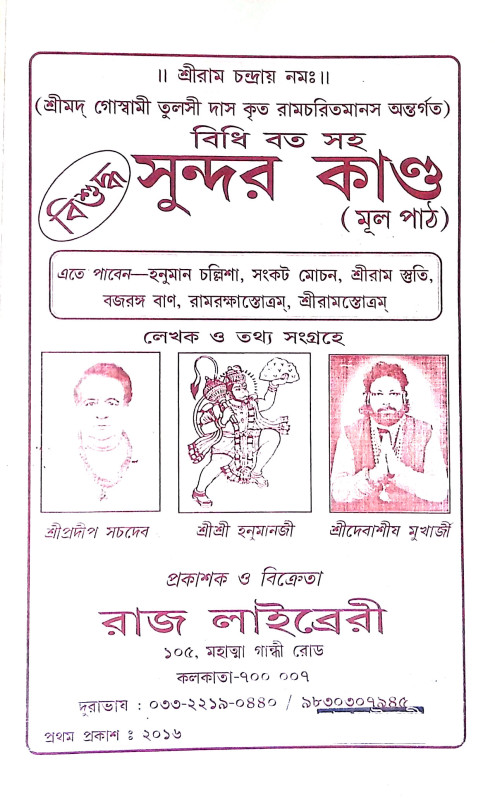 ।। শ্রীরাম চন্দ্রায় নমঃ।।
(শ্রীমদ্ গোস্বামী তুলসী দাস কৃত রামচরিতমানস অন্তর্গত)
বিধি বত সহ
বিশুদ্ধ সুন্দর কাণ্ড
(মূল পাঠ)
এতে পাবেন—হনুমান চল্লিশা, সংকট মোচন, শ্রীরাম স্তুতি,
বজরঙ্গ বাণ, রামরক্ষাস্তোত্রম্, শ্রীরামস্তোত্রম্
লেখক ও তথ্য সংগ্রহে
শ্রীপ্রদীপ সচদেব শ্রীশ্রী হনুমানজী শ্রীদেবাশীষ মুখার্জী
প্রকাশক ও বিক্রেতা
রাজ লাইব্রেরী
১০৫, মহাত্মা গান্ধী রোড
কলকাতা-৭০০ ০০৭
দুরাভাষ : ০৩৩-২২১৯-০৪৪০ / ৯৮৩০৩০৭৯৪৫
প্রথম প্রকাশ : ২০১৬